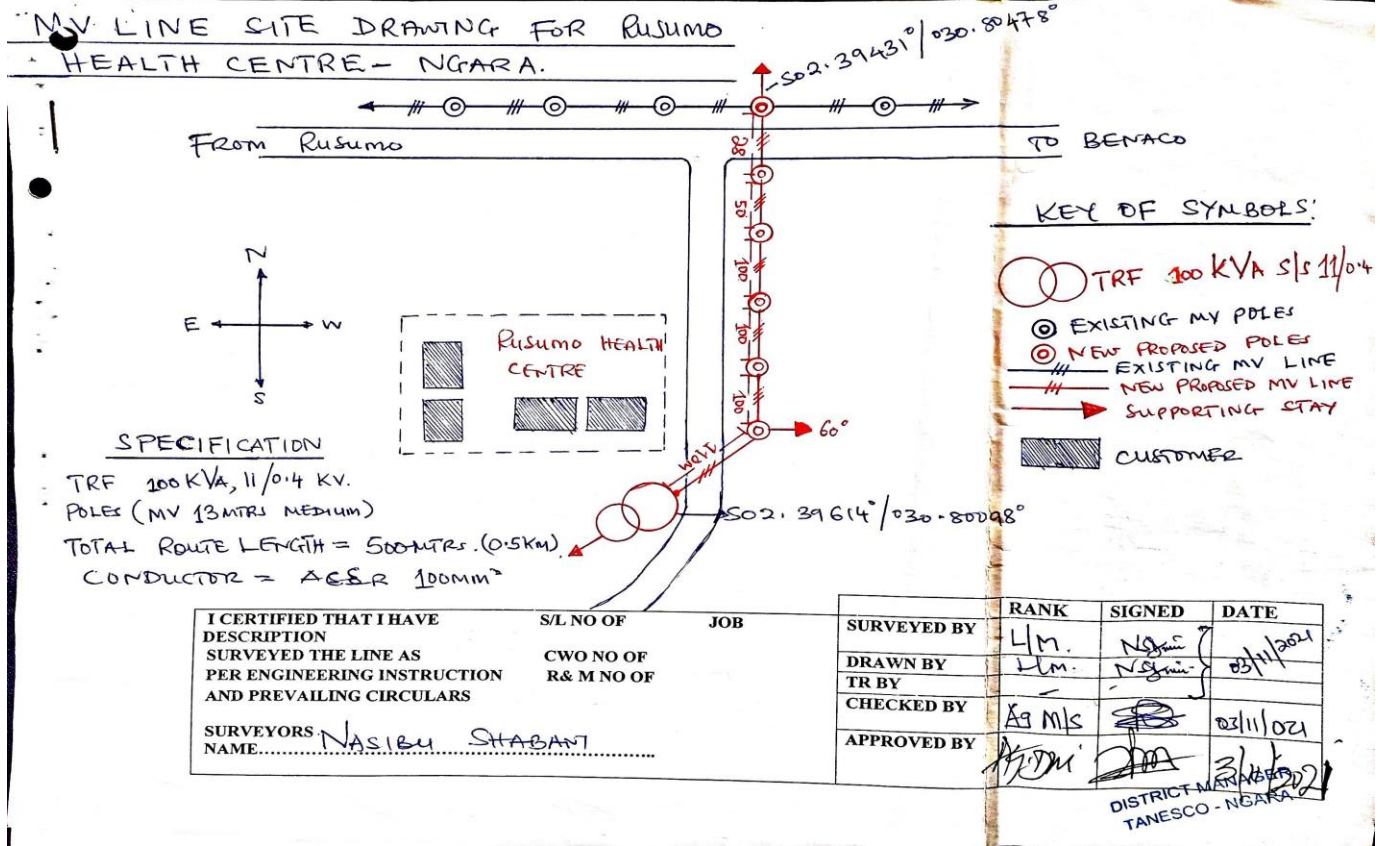 MV LINE SITE DRAWING FOR RUSUMO
HEALTH CENTRE - NGARA.
S02.39431°/030.80478°
FROM RUSUMO
TO BENACO
28
50
100
100
100
110M
60°
N
E W
S
RUSUMO HEALTH
CENTRE
S02.39614°/030.80098°
KEY OF SYMBOLS:
TRF 100 KVA S/S 11/0.4
EXISTING MV POLES
NEW PROPOSED POLES
EXISTING MV LINE
NEW PROPOSED MV LINE
SUPPORTING STAY
CUSTOMER
SPECIFICATION
TRF 100KVA, 11/0.4 KV.
POLES (MV 13MTRS MEDIUM)
TOTAL ROUTE LENGTH = 500MTRS. (0.5KM)
CONDUCTOR = ACSR 100MM²
I CERTIFIED THAT I HAVE S/L NO OF JOB
DESCRIPTION
SURVEYED THE LINE AS CWO NO OF
PER ENGINEERING INSTRUCTION R& M NO OF
AND PREVAILING CIRCULARS
SURVEYORS
NAME NASIBU SHABANI
RANK SIGNED DATE
SURVEYED BY L/M. 03/11/2021
DRAWN BY L/M.
TR BY - -
CHECKED BY Ag M/S 03/11/021
APPROVED BY 3/11/2021
DISTRICT MANAGER
TANESCO - NGARA